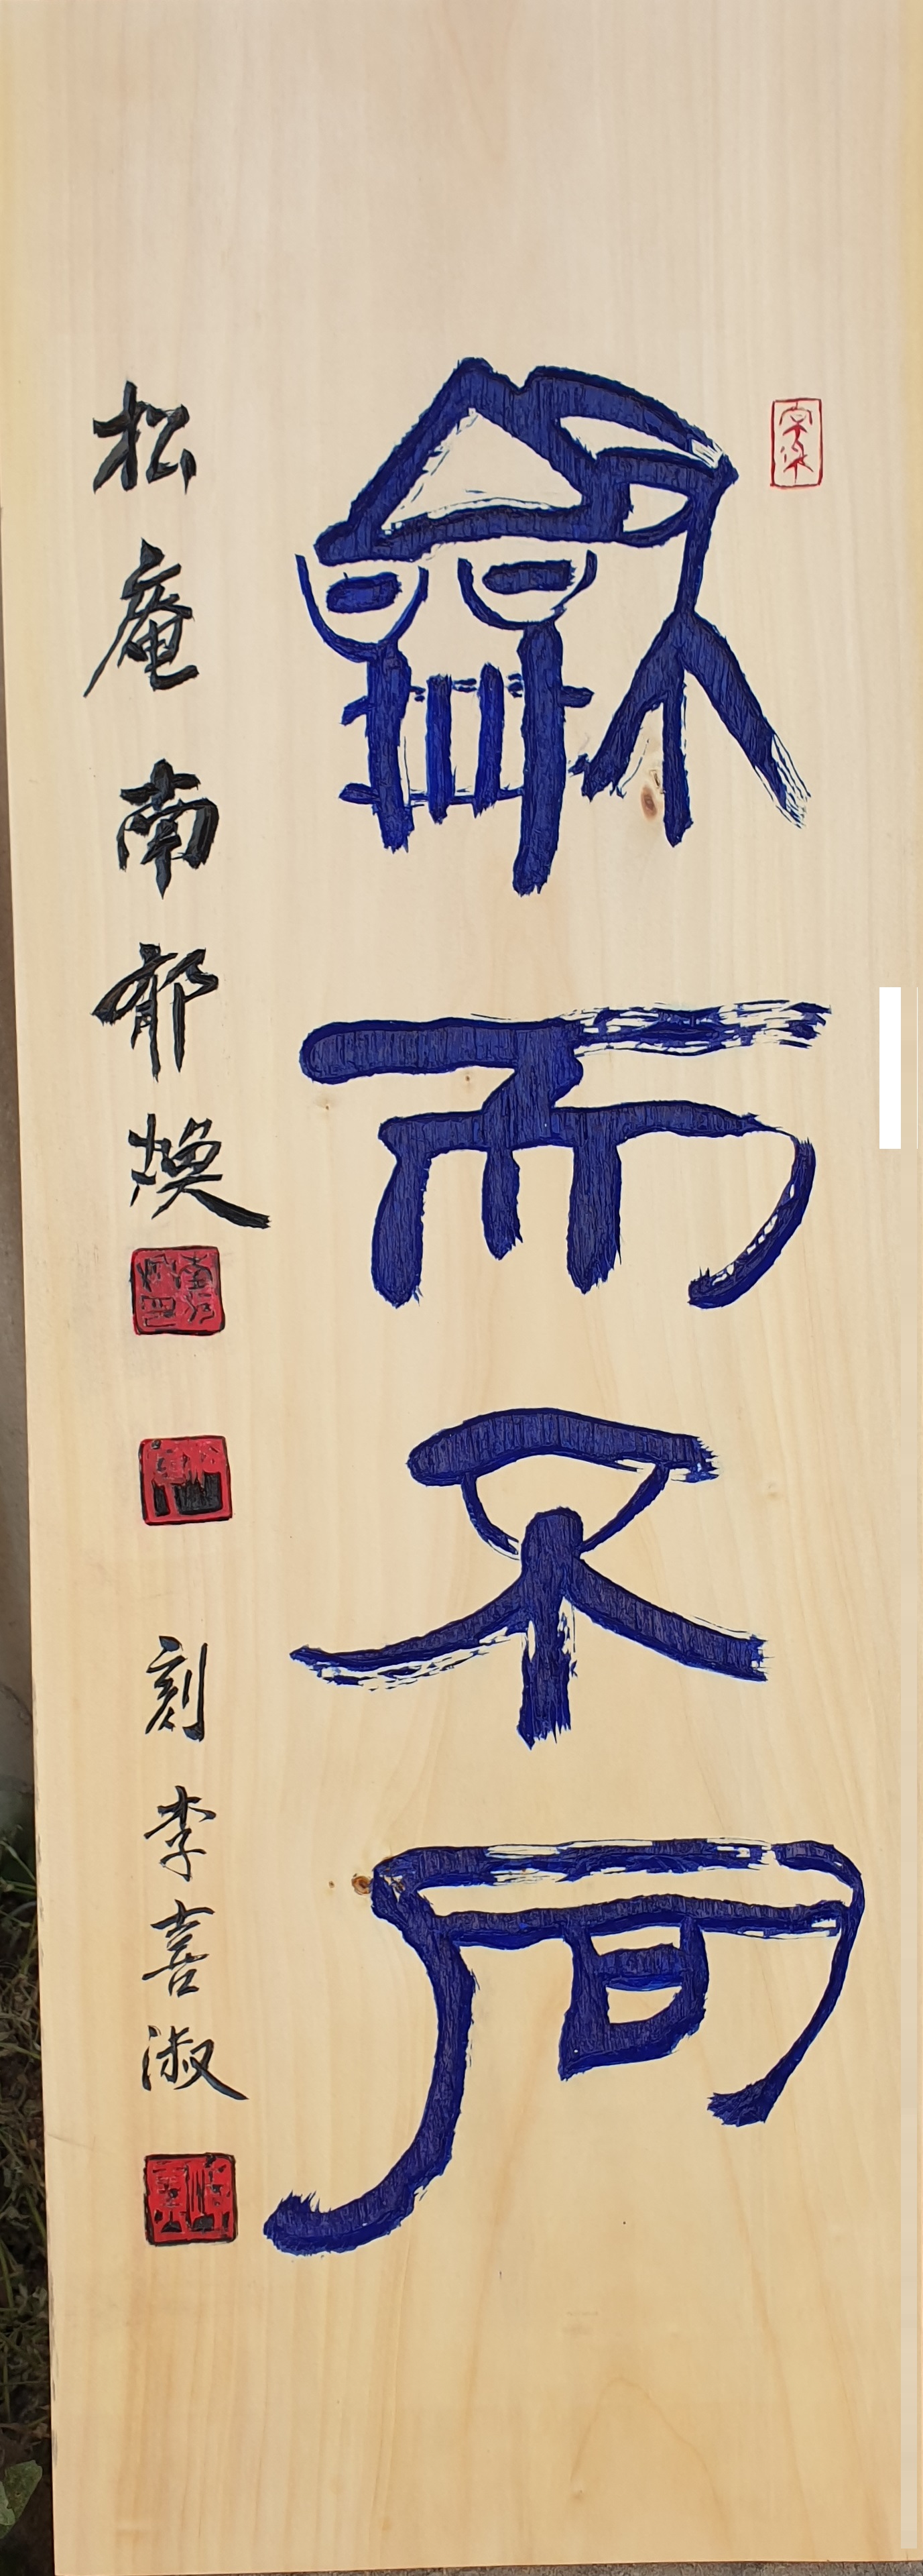 龢而不同
松庵 南郁煥
刻 李喜淑